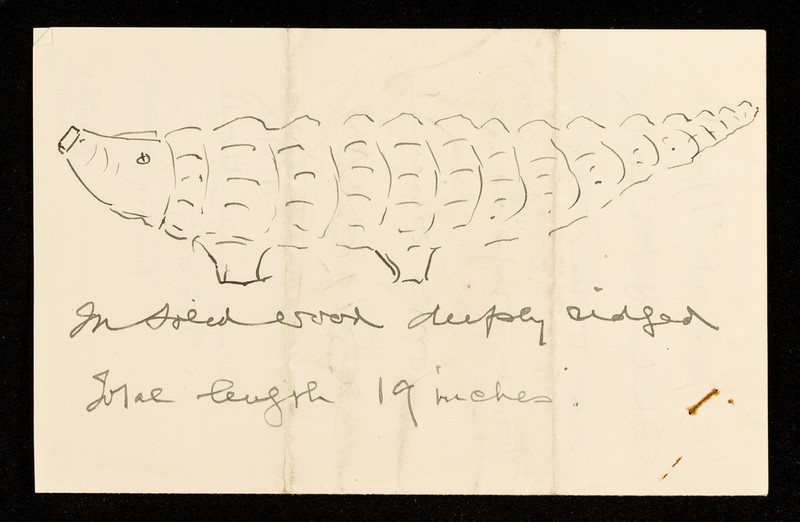 In solid wood deeply ridged
Total length 19 inches.